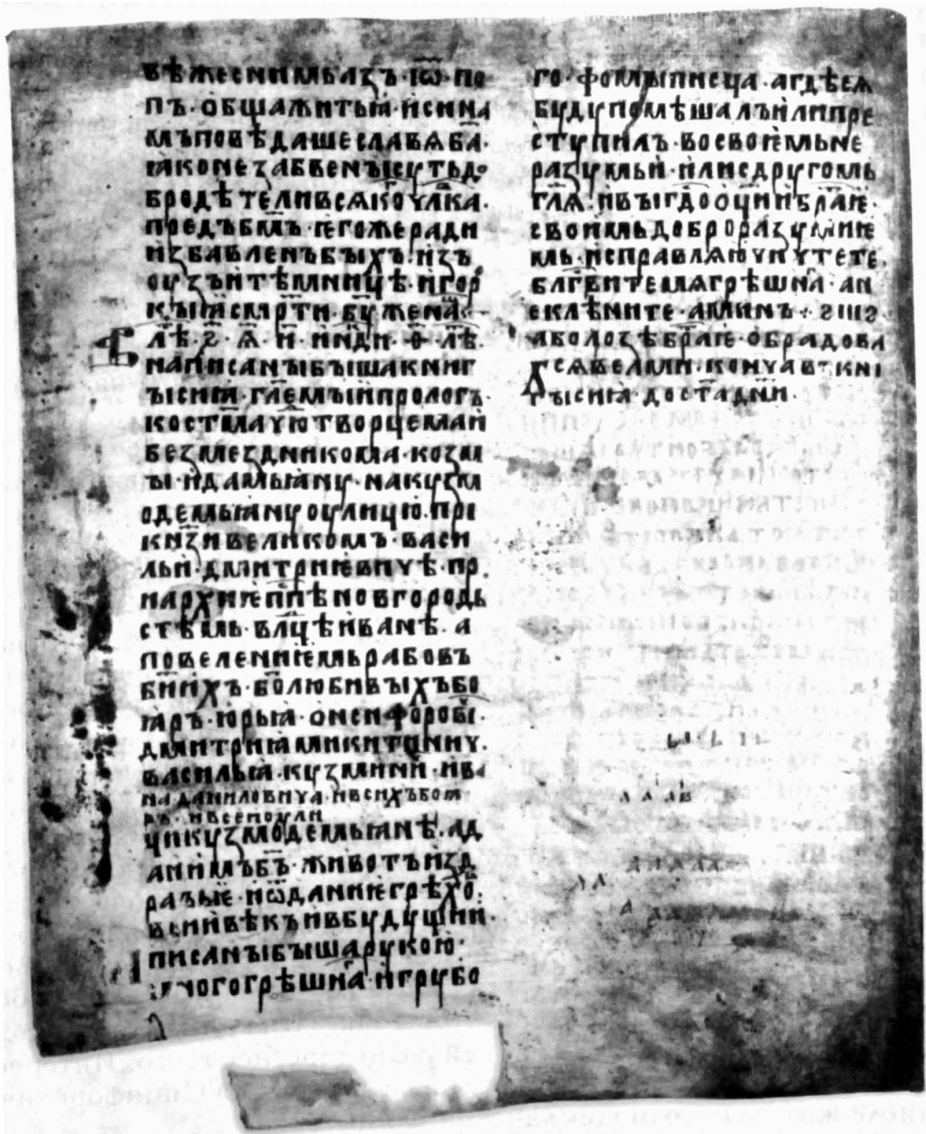 вѣжесними м҃ьлзъ · і҃ѡ по
пъ · обща житьꙗ · исина
мъповѣдаше славѧ б҃а ·
ꙗко незабвенъі суть до
бродѣтели всѧко ч҃лка ·
предъ б҃мъ · ѥгоже ради
избавленъ бъіхъ · изъ
оузъ и тѣмницѣ · и гор
къіꙗ см҃рти · бу же на
лѣ · ҂ѕ · ѿ · и҃ · инди · ѳ · лѣ ·
написанъі бъіша книг
ъі сиꙗ · гл҃емъіи прологъ ·
ко ст҃ма чю҃творцема и
безмездникома · козм
ъі · и дамьꙗну · на кузм
одемьꙗну оулицю · при
кн҃зи великомь · васи
льи · дмитриѥвичѣ · пр
и архиѥп҃пѣ новгородь
стѣмь · вл҃цѣ иванѣ · а
повелениѥмь рабовъ
б҃иихъ · б҃олюбивъіхъ бо
ꙗръ · юрьꙗ · онсифорові ·
дмитриꙗ микитиничу ·
васильꙗ · кузмини · ива
на даниловича · и всихъ боꙗ
ръ · и всеи оули
ци кузмодемьꙗнѣ · аи
аи имъ б҃ъ · животъ и зд
равъе · и ѿданиѥ грѣхо ·
в сии вѣкъ и в будущии ·
писанъі бъіша рукою ·
многогрѣшна҃г · и грубо
го · фомъі писца · а гдѣ сѧ
буду помѣшалъ или пре
ступилъ · во своѥмь не
разумьи · или с другомь
гл҃ѧ · и въі г҃до оц҃и и браѥ ·
своимь доброразумиѥ
мь · исправлѧю чи чтете ·
бл҃гвите мѧ грѣшна҃г · а н
е клѣните · аминъ ⁘
ꙗко лозѣ браѥ · обрадова
хсѧ вельми · кончав · кни
гъі сиꙗ достадни ·